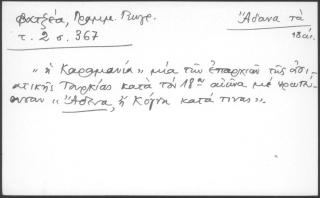 Φατζέα, Γραμμ. Γεωγρ.
Ἄδανα τὰ
τ. 2 σ. 367
18 αἰ.
"ἡ Καραμανία" μία τῶν ἐπαρχιῶν τῆς ἀσι-
ατικῆς Τουρκίας κατὰ τὸν 18ον αἰῶνα μὲ πρωτεύ-
ουσαν "Ἄδενα, ἢ Κόγνη κατά τινας".